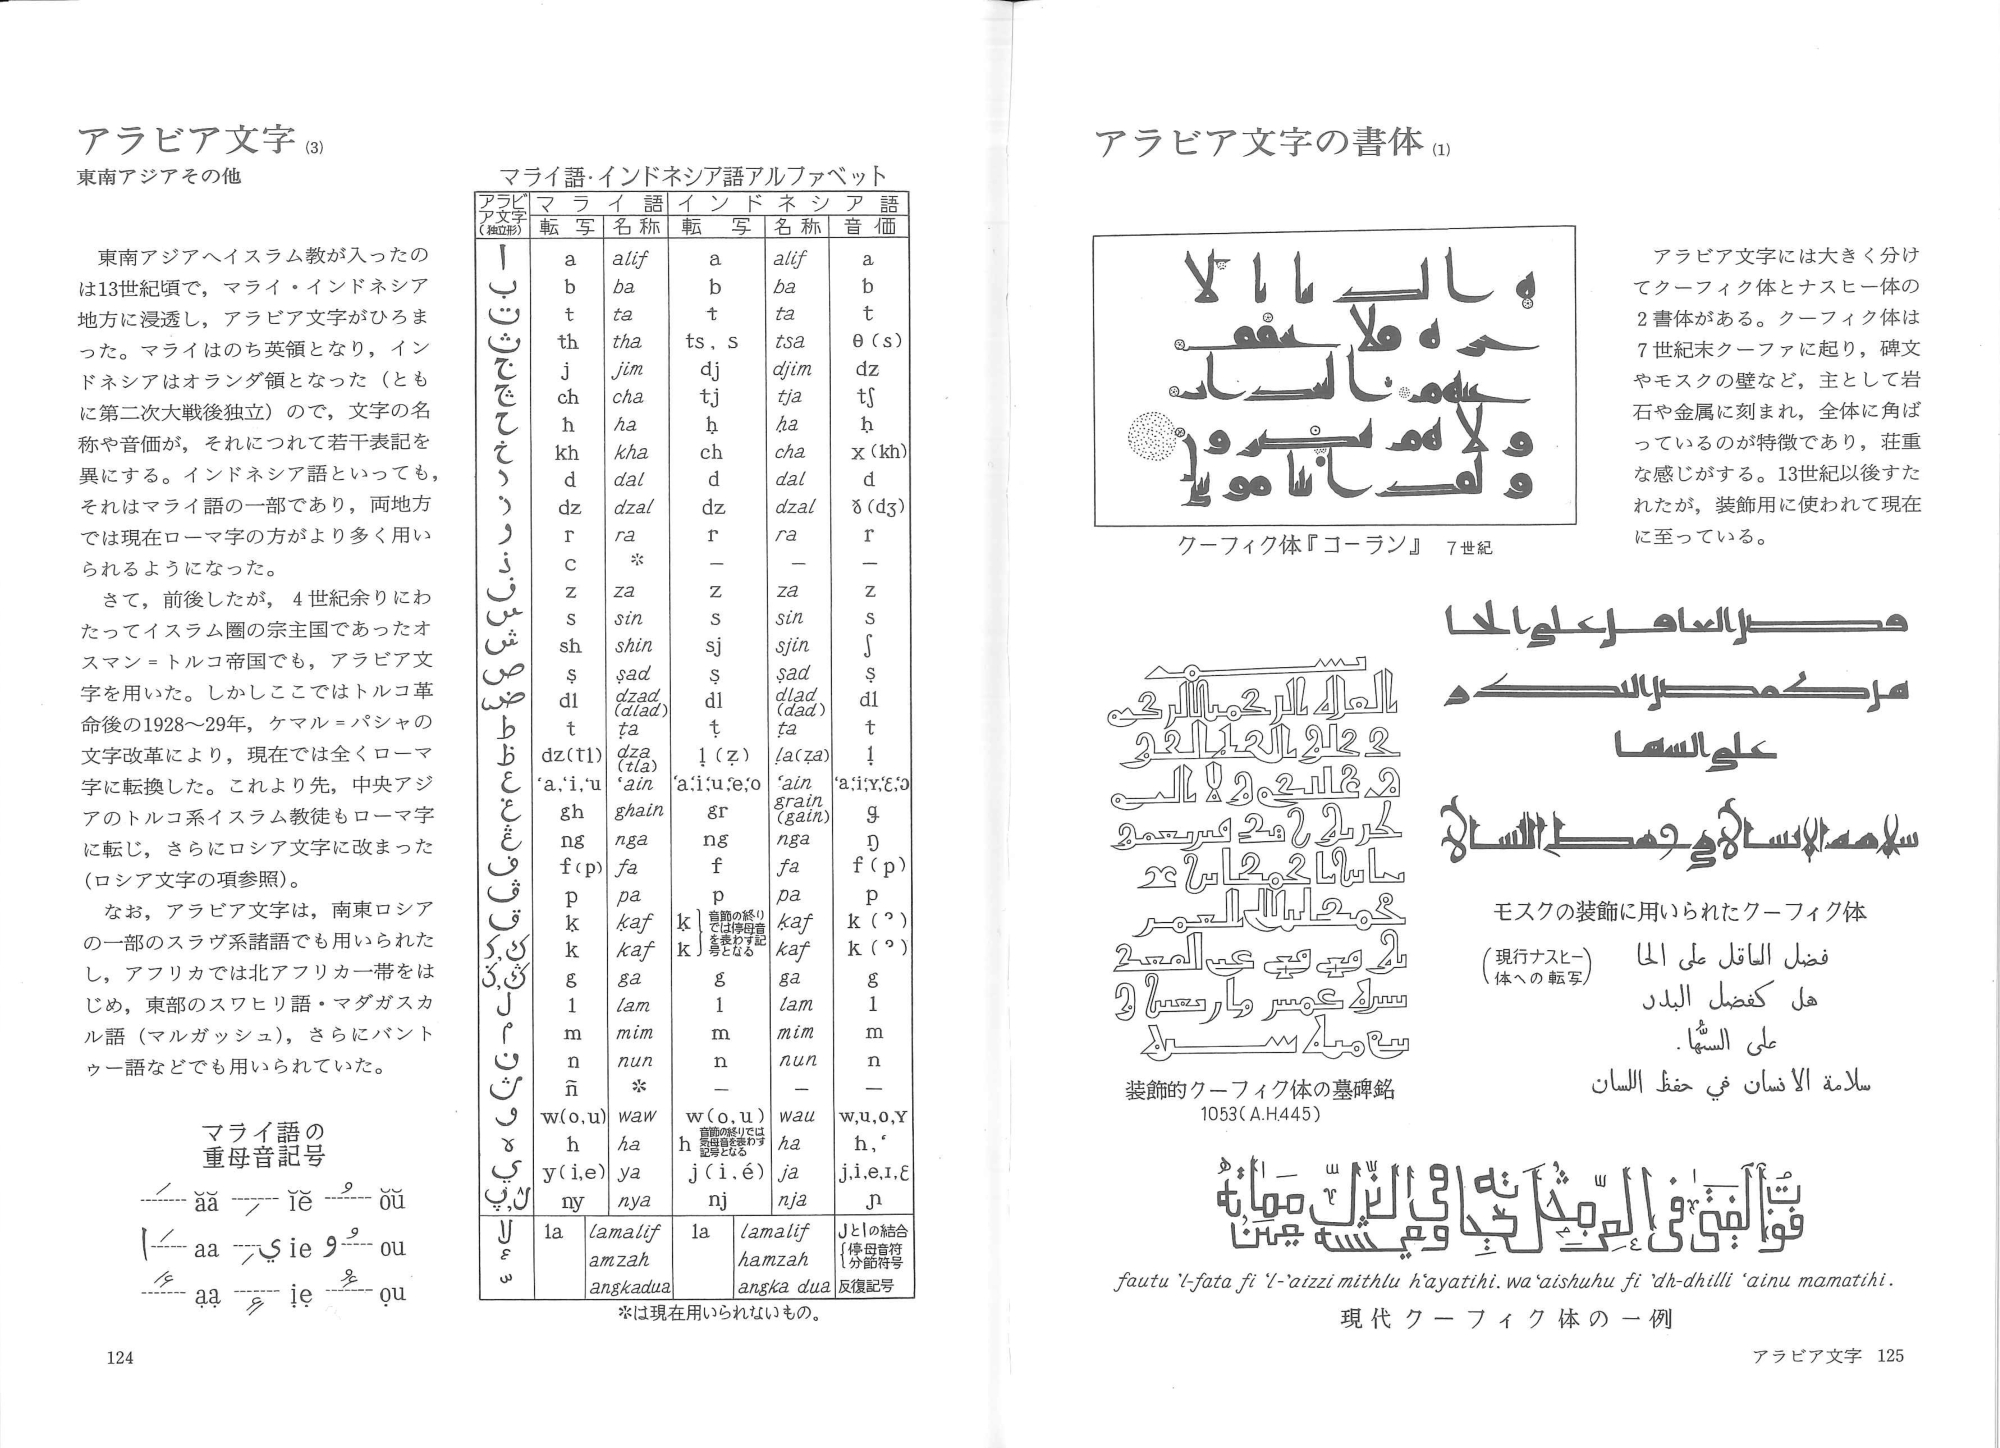 アラビア文字 (3)
東南アジアその他
東南アジアへイスラム教が入ったの
は13世紀頃で，マライ・インドネシア
地方に浸透し，アラビア文字がひろま
った。マライはのち英領となり，イン
ドネシアはオランダ領となった（とも
に第二次大戦後独立）ので，文字の名
称や音価が，それにつれて若干表記を
異にする。インドネシア語といっても，
それはマライ語の一部であり，両地方
では現在ローマ字の方がより多く用い
られるようになった。
さて，前後したが，4世紀余りにわ
たってイスラム圏の宗主国であったオ
スマン＝トルコ帝国でも，アラビア文
字を用いた。しかしここではトルコ革
命後の1928〜29年，ケマル＝パシャの
文字改革により，現在では全くローマ
字に転換した。これより先，中央アジ
アのトルコ系イスラム教徒もローマ字
に転じ，さらにロシア文字に改まった
（ロシア文字の項参照）。
なお，アラビア文字は，南東ロシア
の一部のスラヴ系諸語でも用いられた
し，アフリカでは北アフリカ一帯をは
じめ，東部のスワヒリ語・マダガスカ
ル語（マルガッシュ），さらにバント
ゥー語などでも用いられていた。
マライ語の
重母音記号
ăă ĭĕ ŏŭ
aa ي ie و ou
ạạ ịẹ ọụ
マライ語・インドネシア語アルファベット
アラビア文字（独立形） マライ語 インドネシア語
転写 名称 転写 名称 音価
ا a alif a alif a
ب b ba b ba b
ت t ta t ta t
ث th tha ts, s tsa θ(s)
ج j jim dj djim dz
چ ch cha tj tja tʃ
ح h ha ḥ ḥa ḥ
خ kh kha ch cha x(kh)
د d dal d dal d
dz dzal dz dzal ð(dʒ)
ر r ra r ra r
c ＊ — — —
z za z za z
س s sin s sin s
ش sh shin sj sjin ʃ
ص ṣ ṣad ṣ ṣad ṣ
ض dl dzad (dlad) dl dlad (dad) dl
ط t ṭa ṭ ṭa t
ظ dz(tl) dza (tla) ḷ(ẓ) ḷa(ẓa) ḷ
ع ‘a,‘i,‘u ‘ain ‘a,‘i,‘u,‘e,‘o ‘ain ‘a,‘i,‘ʏ,‘ɛ,‘ɔ
غ gh ghain gr grain (gain) g
ڠ ng nga ng nga ŋ
ف f(p) fa f fa f(p)
ڤ p pa p pa p
ق k ḳaf k 音節の終りでは停母音を表わす記号となる ḳaf k(ʔ)
ک k kaf k kaf k(ʔ)
g ga g ga g
ل l lam l lam l
م m mim m mim m
ن n nun n nun n
ث ñ ＊ — — —
و w(o,u) waw w(o,u) wau w,u,o,ʏ
ه h ha h 音節の終りでは気母音を表わす記号となる ha h,‘
ي y(i,e) ya j(i,é) ja j,i,e,ɪ,ɛ
ny nya nj nja ɲ
لا la lamalif la lamalif لとاの結合
ء amzah hamzah 停母音符 分節符号
angkadua angka dua 反復記号
＊は現在用いられないもの。
124
アラビア文字の書体 (1)
アラビア文字には大きく分け
てクーフィク体とナスヒー体の
2書体がある。クーフィク体は
7世紀末クーファに起り，碑文
やモスクの壁など，主として岩
石や金属に刻まれ，全体に角ば
っているのが特徴であり，荘重
な感じがする。13世紀以後すた
れたが，装飾用に使われて現在
に至っている。
クーフィク体『コーラン』 7世紀
装飾的クーフィク体の墓碑銘
1053(A.H.445)
モスクの装飾に用いられたクーフィク体
（現行ナスヒー
体への転写）
فضل العاقل على الجا
هل كفضل البدر
على السُّها.
سلامة الانسان في حفظ اللسان
fautu ’l-fata fi ’l-‘aizzi mithlu h‘ayatihi. wa‘aishuhu fi ’dh-dhilli ‘ainu mamatihi.
現代クーフィク体の一例
アラビア文字 125